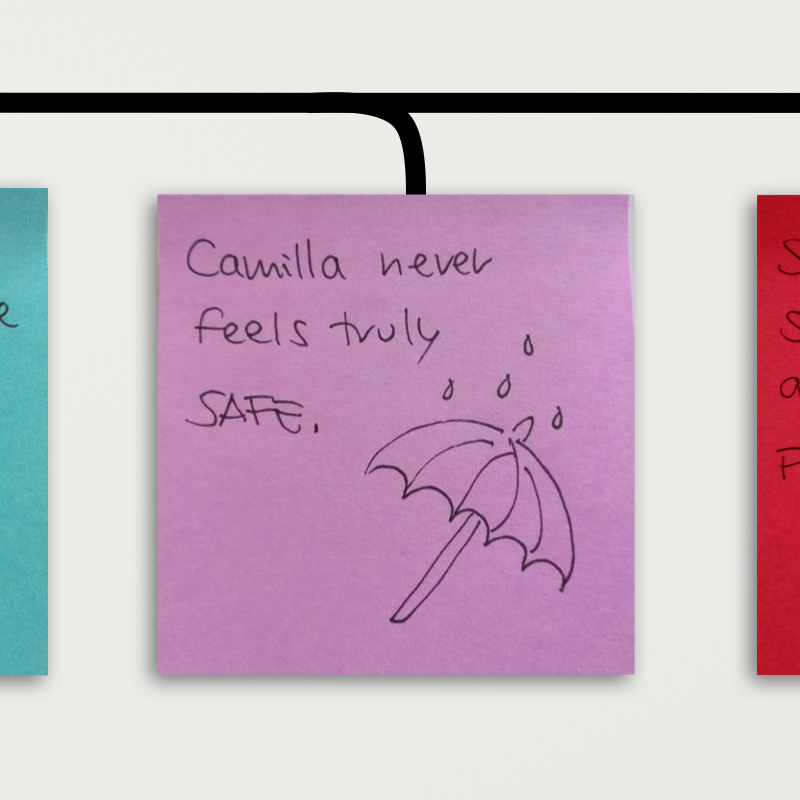 Camilla never
feels truly
SAFE.